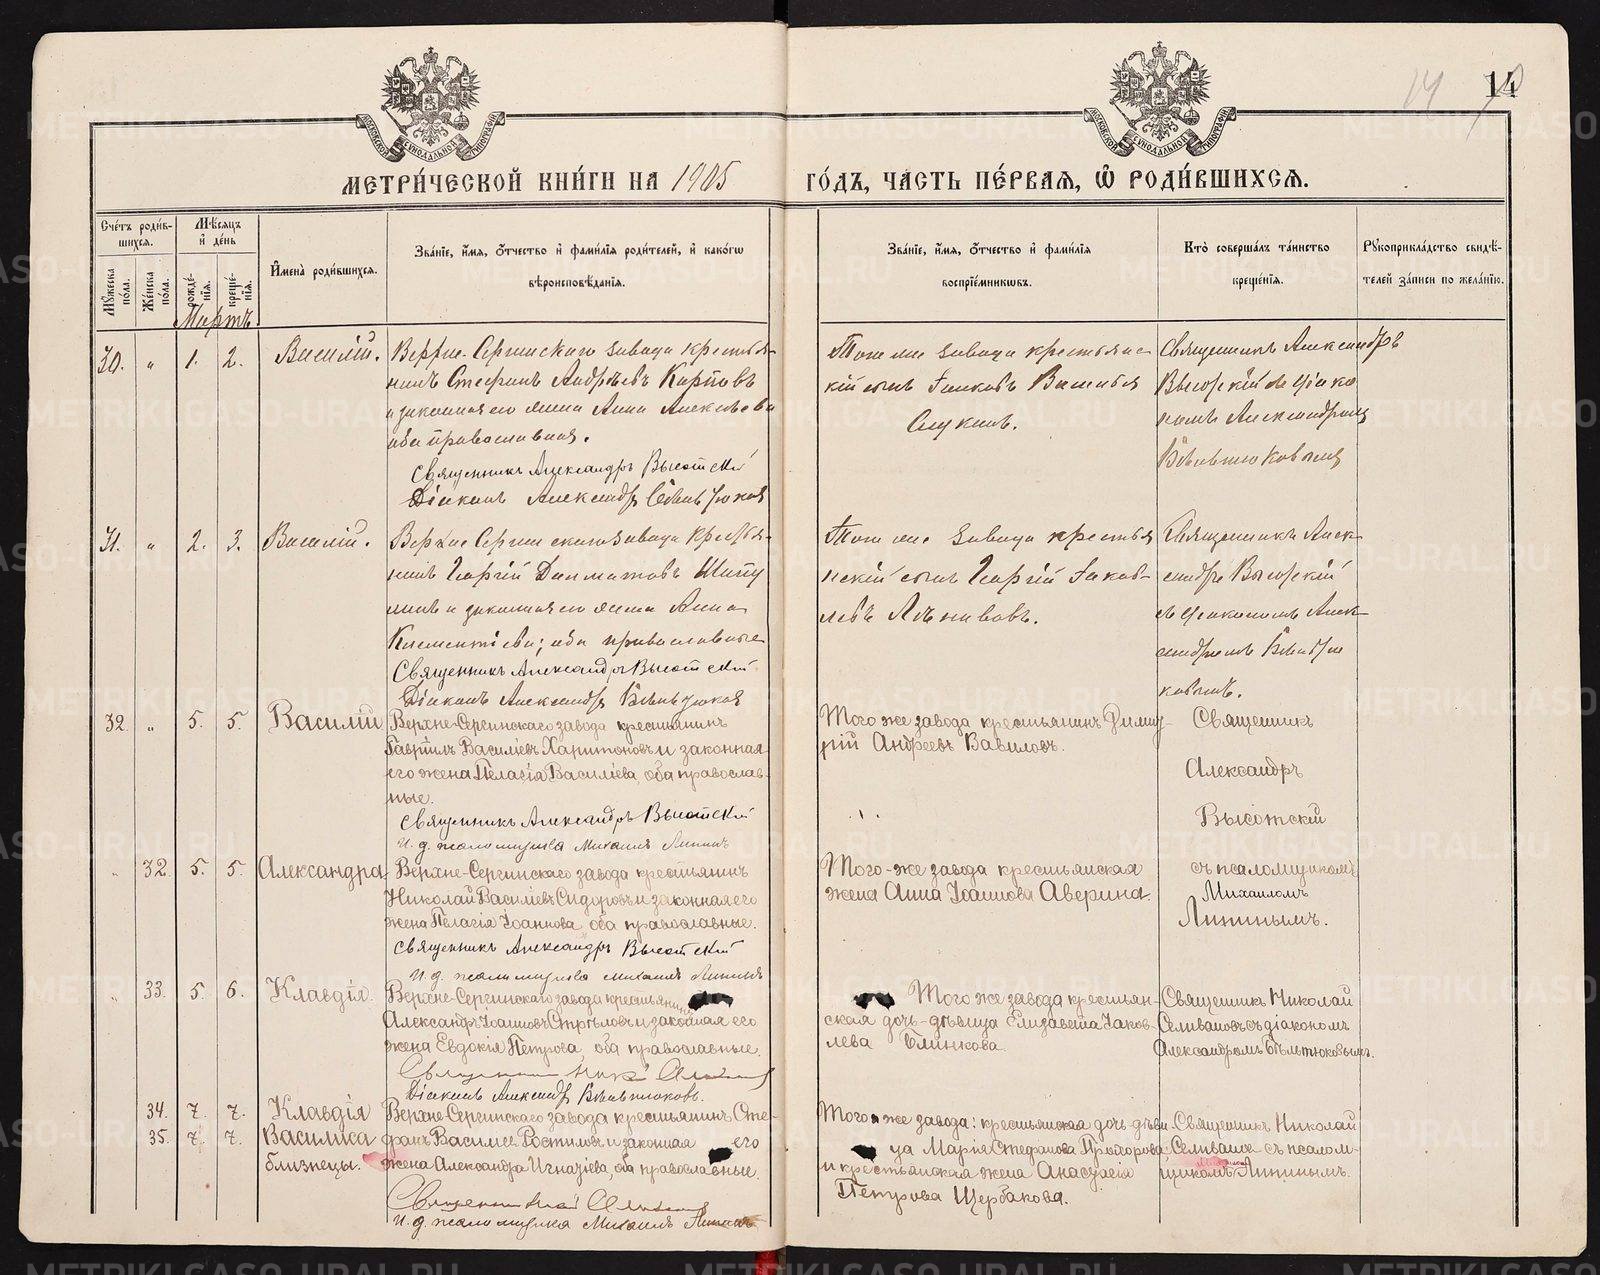 14 14
МОСКОВСКОЙ СУНОДАЛЬНОЙ ТИПОГРАФІИ
МОСКОВСКОЙ СУНОДАЛЬНОЙ ТИПОГРАФІИ
МЕТРИ́ЧЕСКОЙ КНИ́ГИ НА 1905 ГО́ДЪ, ЧА́СТЬ ПЕ́РВАЯ, Ѽ РОДИ́ВШИХСЯ.
Сче́тъ роди́вшихся.
Му́жеска по́ла.
Же́нска по́ла.
Мѣ́сяцъ и де́нь
рожде́нїя.
креще́нїя.
И҆мена̀ роди́вшихся.
Зва́нїе, и҆́мя, ѻ҆́тчество и҆ фами́лїя роди́телей, и҆ како́гѡ вѣроисповѣ́данїя.
Зва́нїе, и҆́мя, ѻ҆́тчество и҆ фами́лїя воспрїе́мникѡвъ.
Кто̀ соверша́лъ та́инство креще́нїя.
Рꙋкоприкла́дство свидѣ́телей за́писи по жела́нїю.
Мартъ
30. „ 1. 2. Василій.
Верхне-Сергинскаго завода крестья-
нинъ Стефанъ Андреевъ Карповъ
и законная его жена Анна Алексѣева
оба православные.
Священникъ Александръ Высотскій
Діаконъ Александръ Бѣльтюковъ
Того же завода крестьянс-
кій сынъ Іаковъ Васильев
Священникъ Александръ
Высотскій съ діако
номъ Александромъ
Бѣльтюковымъ
31. „ 2. 3. Василій.
Верхне Сергинскаго завода крестья-
нинъ Георгій Далматовъ Шипу
линъ и законная его жена Анна
Климентіева; оба православные
Священникъ Александръ Высотскій
Діаконъ Александръ Бѣльтюковъ
Того же завода крестья
нскій сынъ Георгій Іаков-
левъ
Священникъ Алек-
сандръ Высотскій
съ діакономъ Алек-
сандромъ Бѣльтю
ковымъ.
32. „ 5. 5. Василій
Верхне-Сергинскаго завода крестьянинъ
Гавріилъ Василіевъ Харитоновъ и законная
его жена Пелагія Василіева, оба православ-
ные.
Священникъ Александръ Высотскій
И. д. псаломщика Михаилъ Липинъ
Того же завода крестьянинъ Димит-
рій Андреевъ Вавиловъ.
Священникъ
Александръ
Высотскій
„ 32. 5. 5. Александра
Верхне-Сергинскаго завода крестьянинъ
Николай Василіевъ Сидоровъ и законная его
жена Пелагія Іоаннова, оба православные.
Священникъ Александръ Высотскій
И. д. псаломщика Михаилъ Липинъ
Того-же завода крестьянская
жена Анна Іоаннова Аверина.
съ псаломщикомъ
Михаиломъ
Липинымъ.
„ 33. 5. 6. Клавдія.
Верхне-Сергинскаго завода крестьянинъ
Александръ Іоанновъ Стрѣловъ и законная его
жена Евдокія Петрова, оба православные.
Діаконъ Александръ Бѣльтюковъ.
Того же завода крестьян-
ская дочь-дѣвица Елизавета Іаков-
лева Блинкова.
Священникъ Николай
Селивановъ съ діакономъ
Александромъ Бѣльтюковымъ.
34. 7. 7. Клавдія
35. 7. 7. Василиса
близнецы.
Верхне-Сергинскаго завода крестьянинъ Сте-
фанъ Василіевъ и законная его
жена Александра Игнатіева, оба православные.
И. д. псаломщика Михаилъ Липинъ
Того же завода: крестьянская дочь дѣви-
ца Марія Стефанова Прохорова,
и крестьянская жена Анастасія
Петрова Щербакова.
Священникъ Николай
Селивановъ съ псалом-
щикомъ Михаиломъ Липинымъ.
METRIKI.GASO-URAL.RU